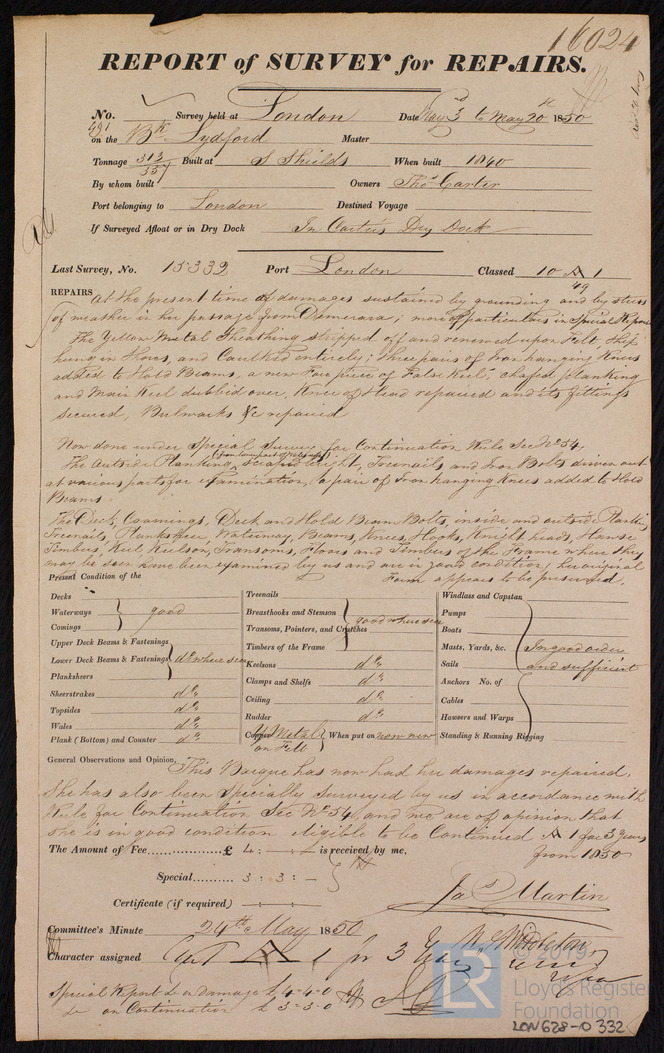 16024
REPORT of SURVEY for REPAIRS.
No. 491 Survey held at London Date May 3rd to May 20th 1850
on the Bk Lydford Master
Tonnage 313/337 Built at S Shields When built 1840
By whom built Owners Thos Carter
Port belonging to London Destined Voyage
If Surveyed Afloat or in Dry Dock In Carters Dry Dock
Last Survey, No. 15339 Port London Classed 10 A 1
49
REPAIRS at the present time of damages sustained by grounding and by stress
of weather in her passage from Demerara; more particulars in Special Report
The Yellow Metal Sheathing stripped off and renewed upon Felt, Ship
hung in Shores, and Caulked entirely; three pairs of Iron hanging Knees
added to Hold Beams, a new Fore piece of False Keel, chafed planking
and Main Keel dubbed over, Knee of Head repaired and its fittings
secured, Bulwarks &c repaired
Now done under Special Survey for Continuation Rule Sec No 54.
The Outside Planking scraped bright, Treenails and Iron Bolts driven out
at various parts for examination, a pair of Iron hanging Knees added to Hold
Beams
The Deck, Coamings, Deck and Hold Beam Bolts, inside and outside Planking
Treenails, Planksheer, Waterway, Beams, Knees, Hooks, Knight heads, Hawse
Timbers, Keel Keelson, Transoms, Floors and Timbers of the Frame where they
may be seen have been examined by us and are in good condition, her original
Form appears to be preserved.
Present Condition of the
Decks
Waterways good
Comings
Upper Deck Beams & Fastenings
Lower Deck Beams & Fastenings do where seen
Planksheers
Sheerstrakes do
Topsides do
Wales do
Plank (Bottom) and Counter do
Treenails
Breasthooks and Stemson good where seen
Transoms, Pointers, and Crutches
Timbers of the Frame
Keelsons do
Clamps and Shelfs do
Ceiling do
Rudder do
Copper Y Metal on Felt When put on now new
Windlass and Capstan
Pumps
Boats
Masts, Yards, &c. In good order
Sails and sufficient
Anchors No. of
Cables
Hawsers and Warps
Standing & Running Rigging
General Observations and Opinion, This Barque has now had her damages repaired.
She has also been Specially Surveyed by us in accordance with
Rule for Continuation Sec No 54, and we are of opinion that
she is in good condition eligible to be Continued A 1 for 3 Years
from 1850
The Amount of Fee £ 4 : - : - is received by me,
Special 3 : 3 : -
Certificate (if required) :
Jas Martin
Committee's Minute 24th May 1850
Character assigned A 1 for 3 Years
Special Report on damage £ 4-4-0
Do on Continuation £ 3-3-0
© 2019
LR
Lloyd's Register
Foundation
LON628-0332